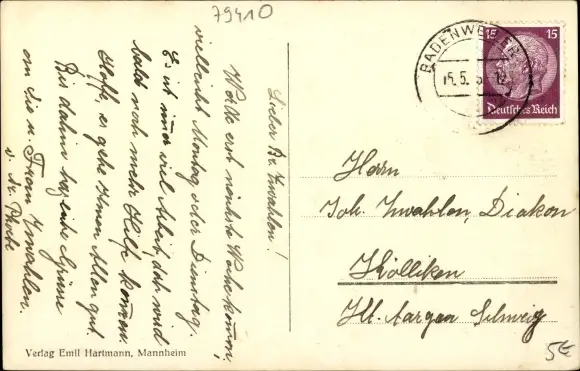 79410
BADENWEILER
15.5.
15 15
Deutsches Reich
Lieber Br. Zwahlen!
Wollte erst nächste Woche kommen,
vielleicht Montag oder Dienstag.
Es ist immer viel Arbeit, doch wird
bald noch mehr Hilfe kommen.
Hoffe, es gehe Ihnen Allen gut.
Bis dahin herzliche Grüsse
an Sie u. Frau Zwahlen.
v. Sr.
Herrn
Joh. Zwahlen, Diakon
Kölliken
Kt. Aargau Schweiz
Verlag Emil Hartmann, Mannheim
5€